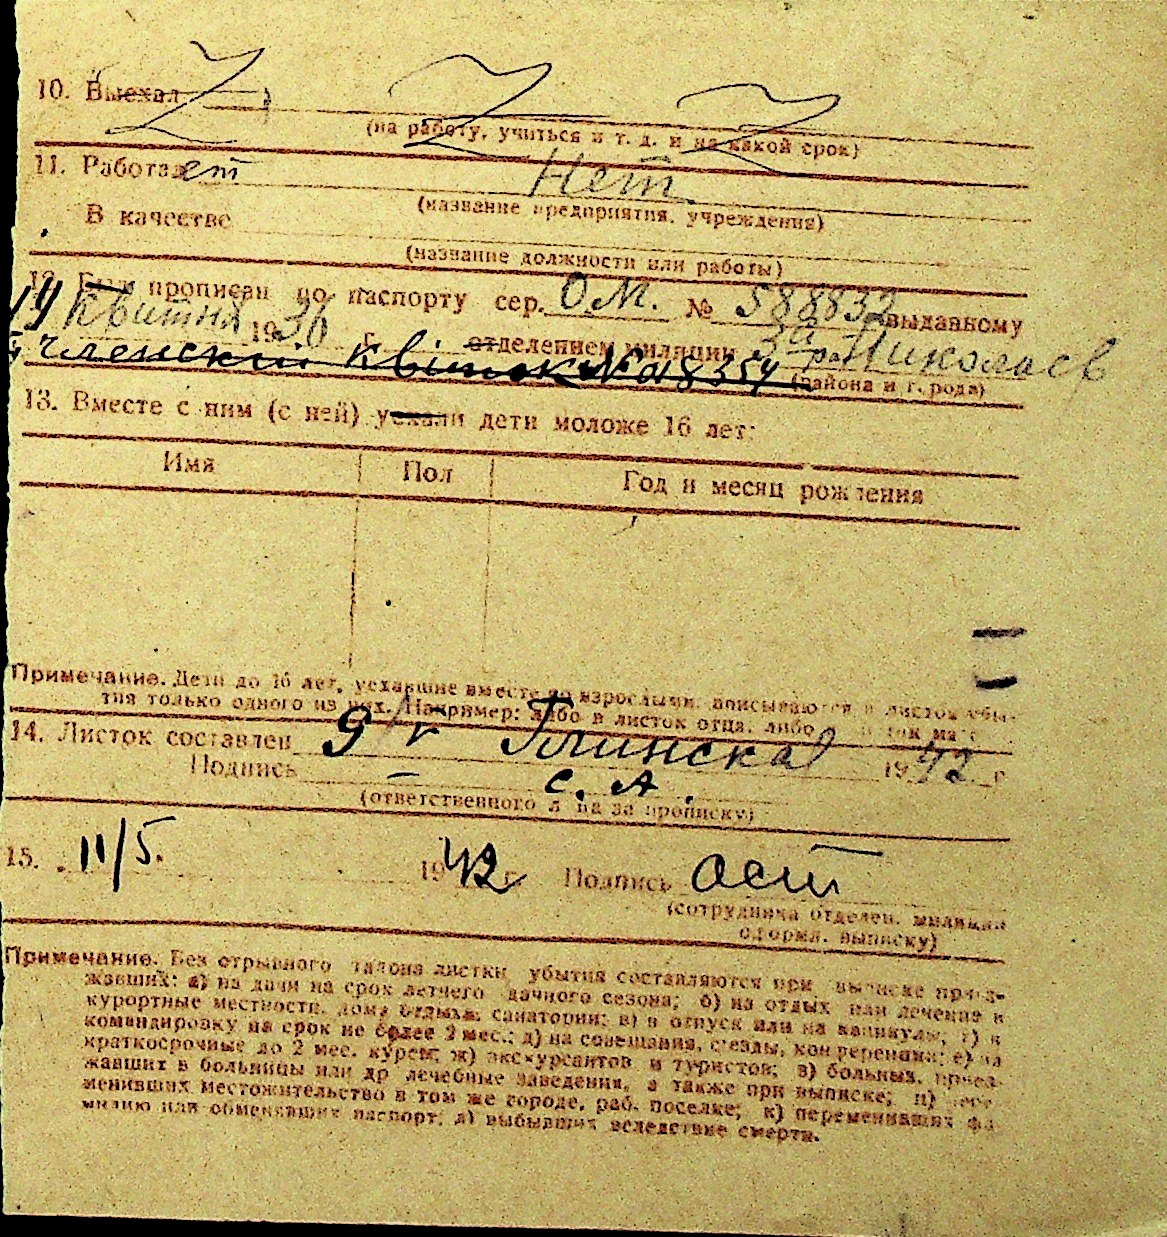 10. Выехал
(на работу, учиться и т. д. и на какой срок)
11. Работает Нет
(название предприятия, учреждения)
В качестве
(название должности или работы)
12. Был прописан по паспорту сер. О.М. № 588832 выданному
14 Квитня 1936 г. отделением милиции за р. Николаев
членский квіток № 018354 (района и города)
13. Вместе с ним (с ней) уехали дети моложе 16 лет:
Имя Пол Год и месяц рождения
Примечание. Дети до 16 лет, уехавшие вместе со взрослыми, вписываются в листок убы-
тия только одного из них. Например: либо в листок отца, либо
14. Листок составлен 9/V Глинская 1942 г
Подпись С. А.
(ответственного л ца за прописку)
15. 11/5. 1942 г. Подпись
(сотрудника отделен. милиции
оформл. выписку)
Примечание. Без отрывного талона листки убытия составляются при выписке приез-
жавших: а) на дачи на срок летнего дачного сезона; б) на отдых или лечение в
курортные местности, дома отдыха, санатории; в) в отпуск или на каникулы; г) в
командировку на срок не более 2 мес.; д) на совещания, съезды, конференции; е) на
краткосрочные до 2 мес. курсы; ж) экскурсантов и туристов; з) больных, приез-
жавших в больницы или др лечебные заведения, а также при выписке; и)
менивших местожительство в том же городе, раб. поселке; к) переменивших фа
милию или обменявших паспорт; л) выбывших вследствие смерти.